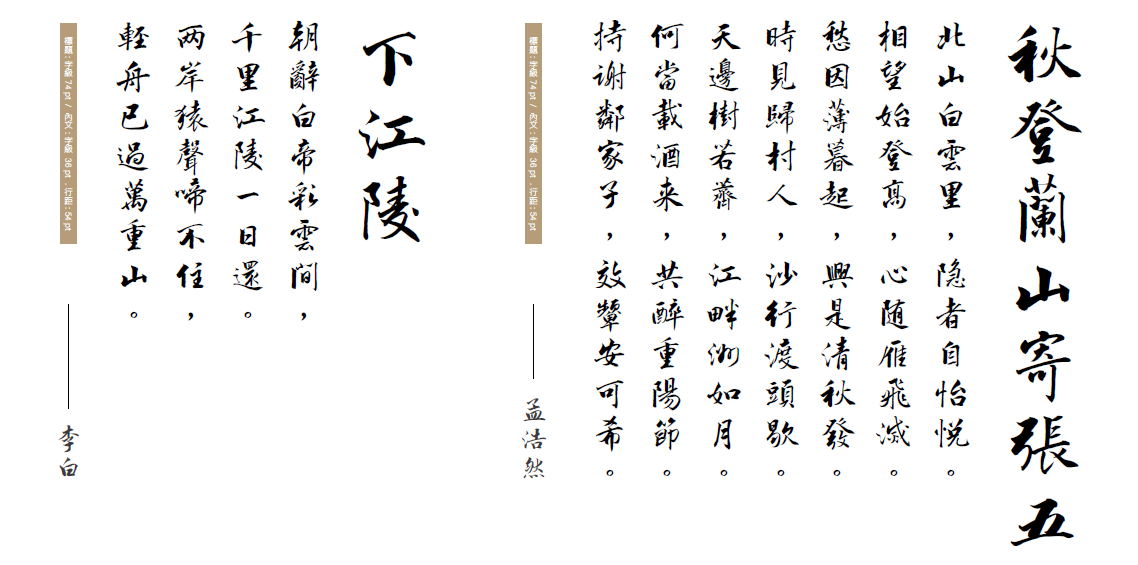 秋登蘭山寄張五
北山白雲里，隐者自怡悦。
相望始登高，心随雁飛滅。
愁因薄暮起，興是清秋發。
時見歸村人，沙行渡頭歇。
天邊樹若薺，江畔洲如月。
何當載酒来，共醉重陽節。
持谢鄰家子，效顰安可希。
標題 : 字級 74 pt / 內文 : 字級 36 pt . 行距 : 54 pt
孟浩然
下江陵
朝辭白帝彩雲間，
千里江陵一日還。
两岸猿聲啼不住，
輕舟已過萬重山。
標題 : 字級 74 pt / 內文 : 字級 36 pt . 行距 : 54 pt
李白